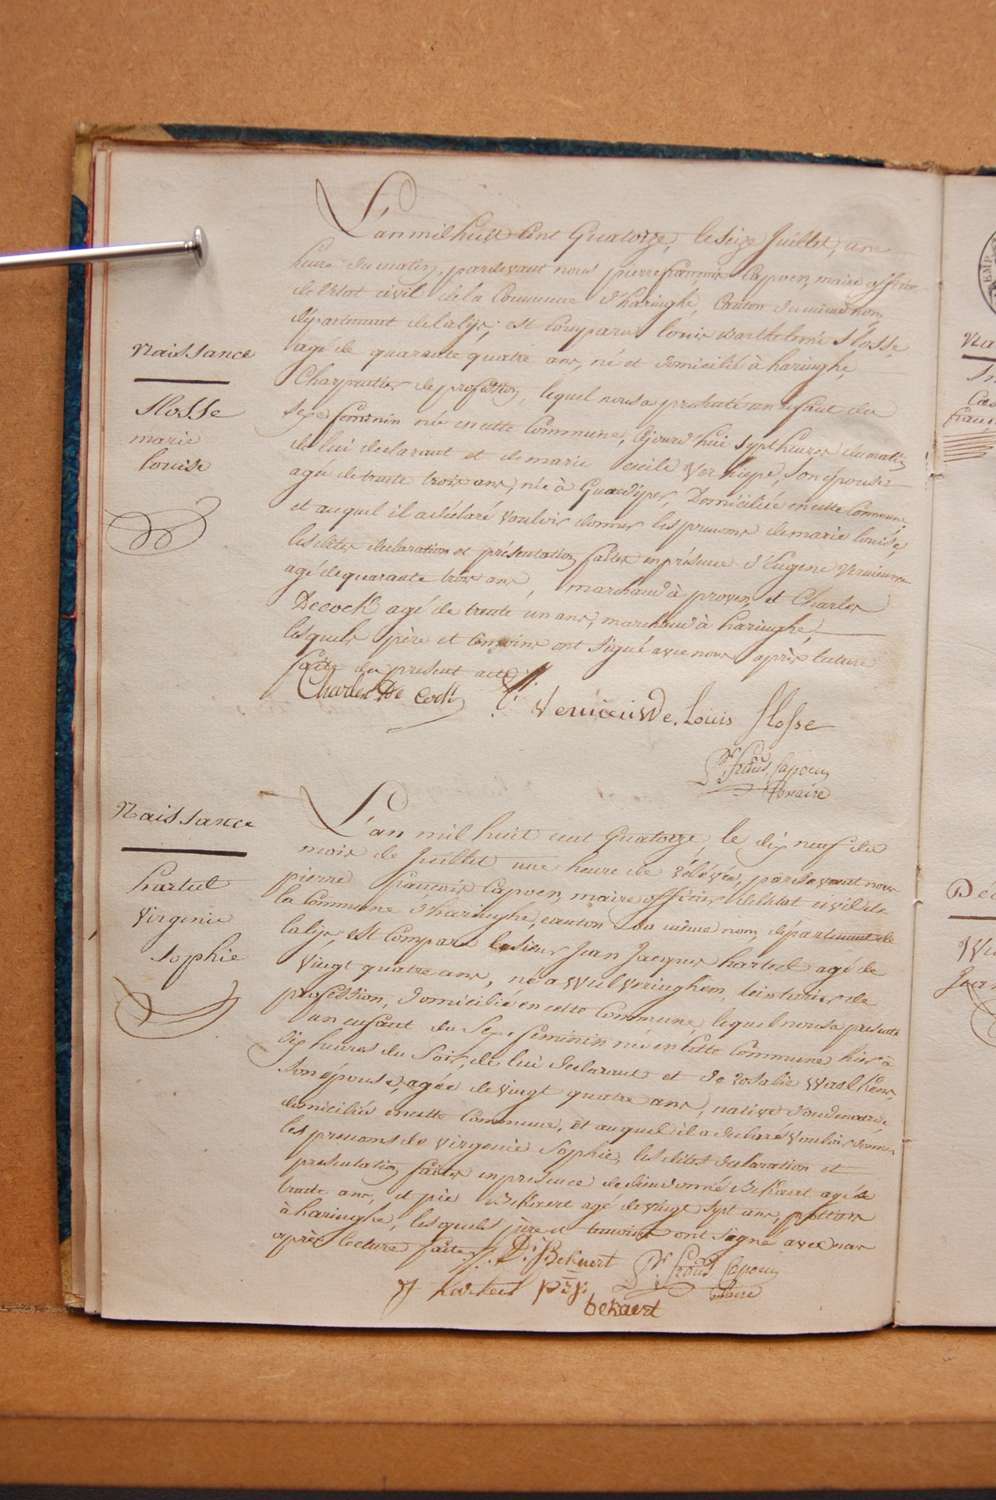 L'an mil huit cent Quatorze, le seize Juillet, une
heure du matin, pardevant nous pierre francois Capoen, maire officier
de l'Etat civil de la Commune d'haringhe, Canton du même nom,
département de la lys, est Comparu louis Barthelomé Flosse,
agé de quarante quatre ans, né et domicilié à haringhe,
Charpentier de profession, lequel nous a presenté un enfant du
sexe féminin née en cette Commune, djourd'hui sept heures du matin,
de lui declarant et de marie cecile Ver
son épouse
agée de trente trois ans, née à
Domiciliée en cette Commune,
et auquel il a déclaré vouloir donner les prenoms de marie louise,
les dites declaration et présentation faites en présence d'Eugene
agé de quarante trois ans, marchand à proven, et Charles
Decock agé de trente un ans, marchand à haringhe,
lesquels père et temoins ont signé avec nous après lecture
faite du present acte
Charles De Cock
Louis Flosse
Capoen
maire
Naissance
Flosse
marie
louise
L'an mil huit cent Quatorze, le dix neuf du
mois de Juillet une heure de rélévée, pardevant nous
pierre francois Capoen, maire officier de l'état civil de
la Commune d'haringhe, canton du même nom, département de
la lys, est Comparu le sieur Jean Jacques harteel agé de
vingt quatre ans, né a Wulveringhem, teinturier de
profession, domicilié en cette Commune, lequel nous a presenté
un enfant du sexe féminin née en Cette Commune hier à
six heures du soir, de lui declarant et de rosalie
son épouse, agée de vingt quatre ans, native
domiciliée en cette Commune, et auquel il a declaré vouloir donner
les prenoms de Virginie Sophie, les dites declaration et
presentation faites en presence de dieudonné Bekaert agé de
trente ans, et pie Bekaert agé de vingt sept ans,
à haringhe, lesquels père et temoins ont signé avec nous
après lecture faite
Bekaert
Capoen
maire
harteel
Bekaert
Naissance
harteel
Virginie
Sophie